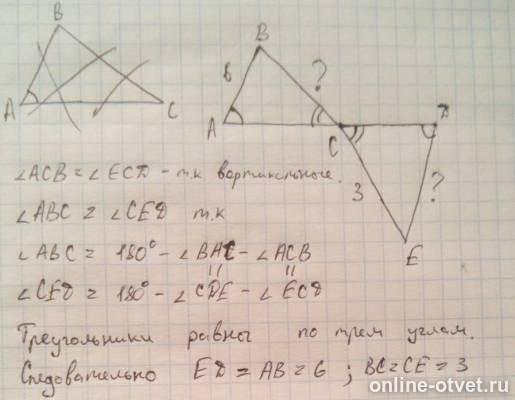 B
A
C
B
6
?
A
C
D
3
?
E
∠ACB = ∠ECD - т.к вертикальные.
∠ABC = ∠CED т.к
∠ABC = 180° - ∠BAC - ∠ACB
∠CED = 180° - ∠CDE - ∠ECD
Треугольники равны по трем углам.
Следовательно ED = AB = 6 ; BC = CE = 3
online-otvet.ru